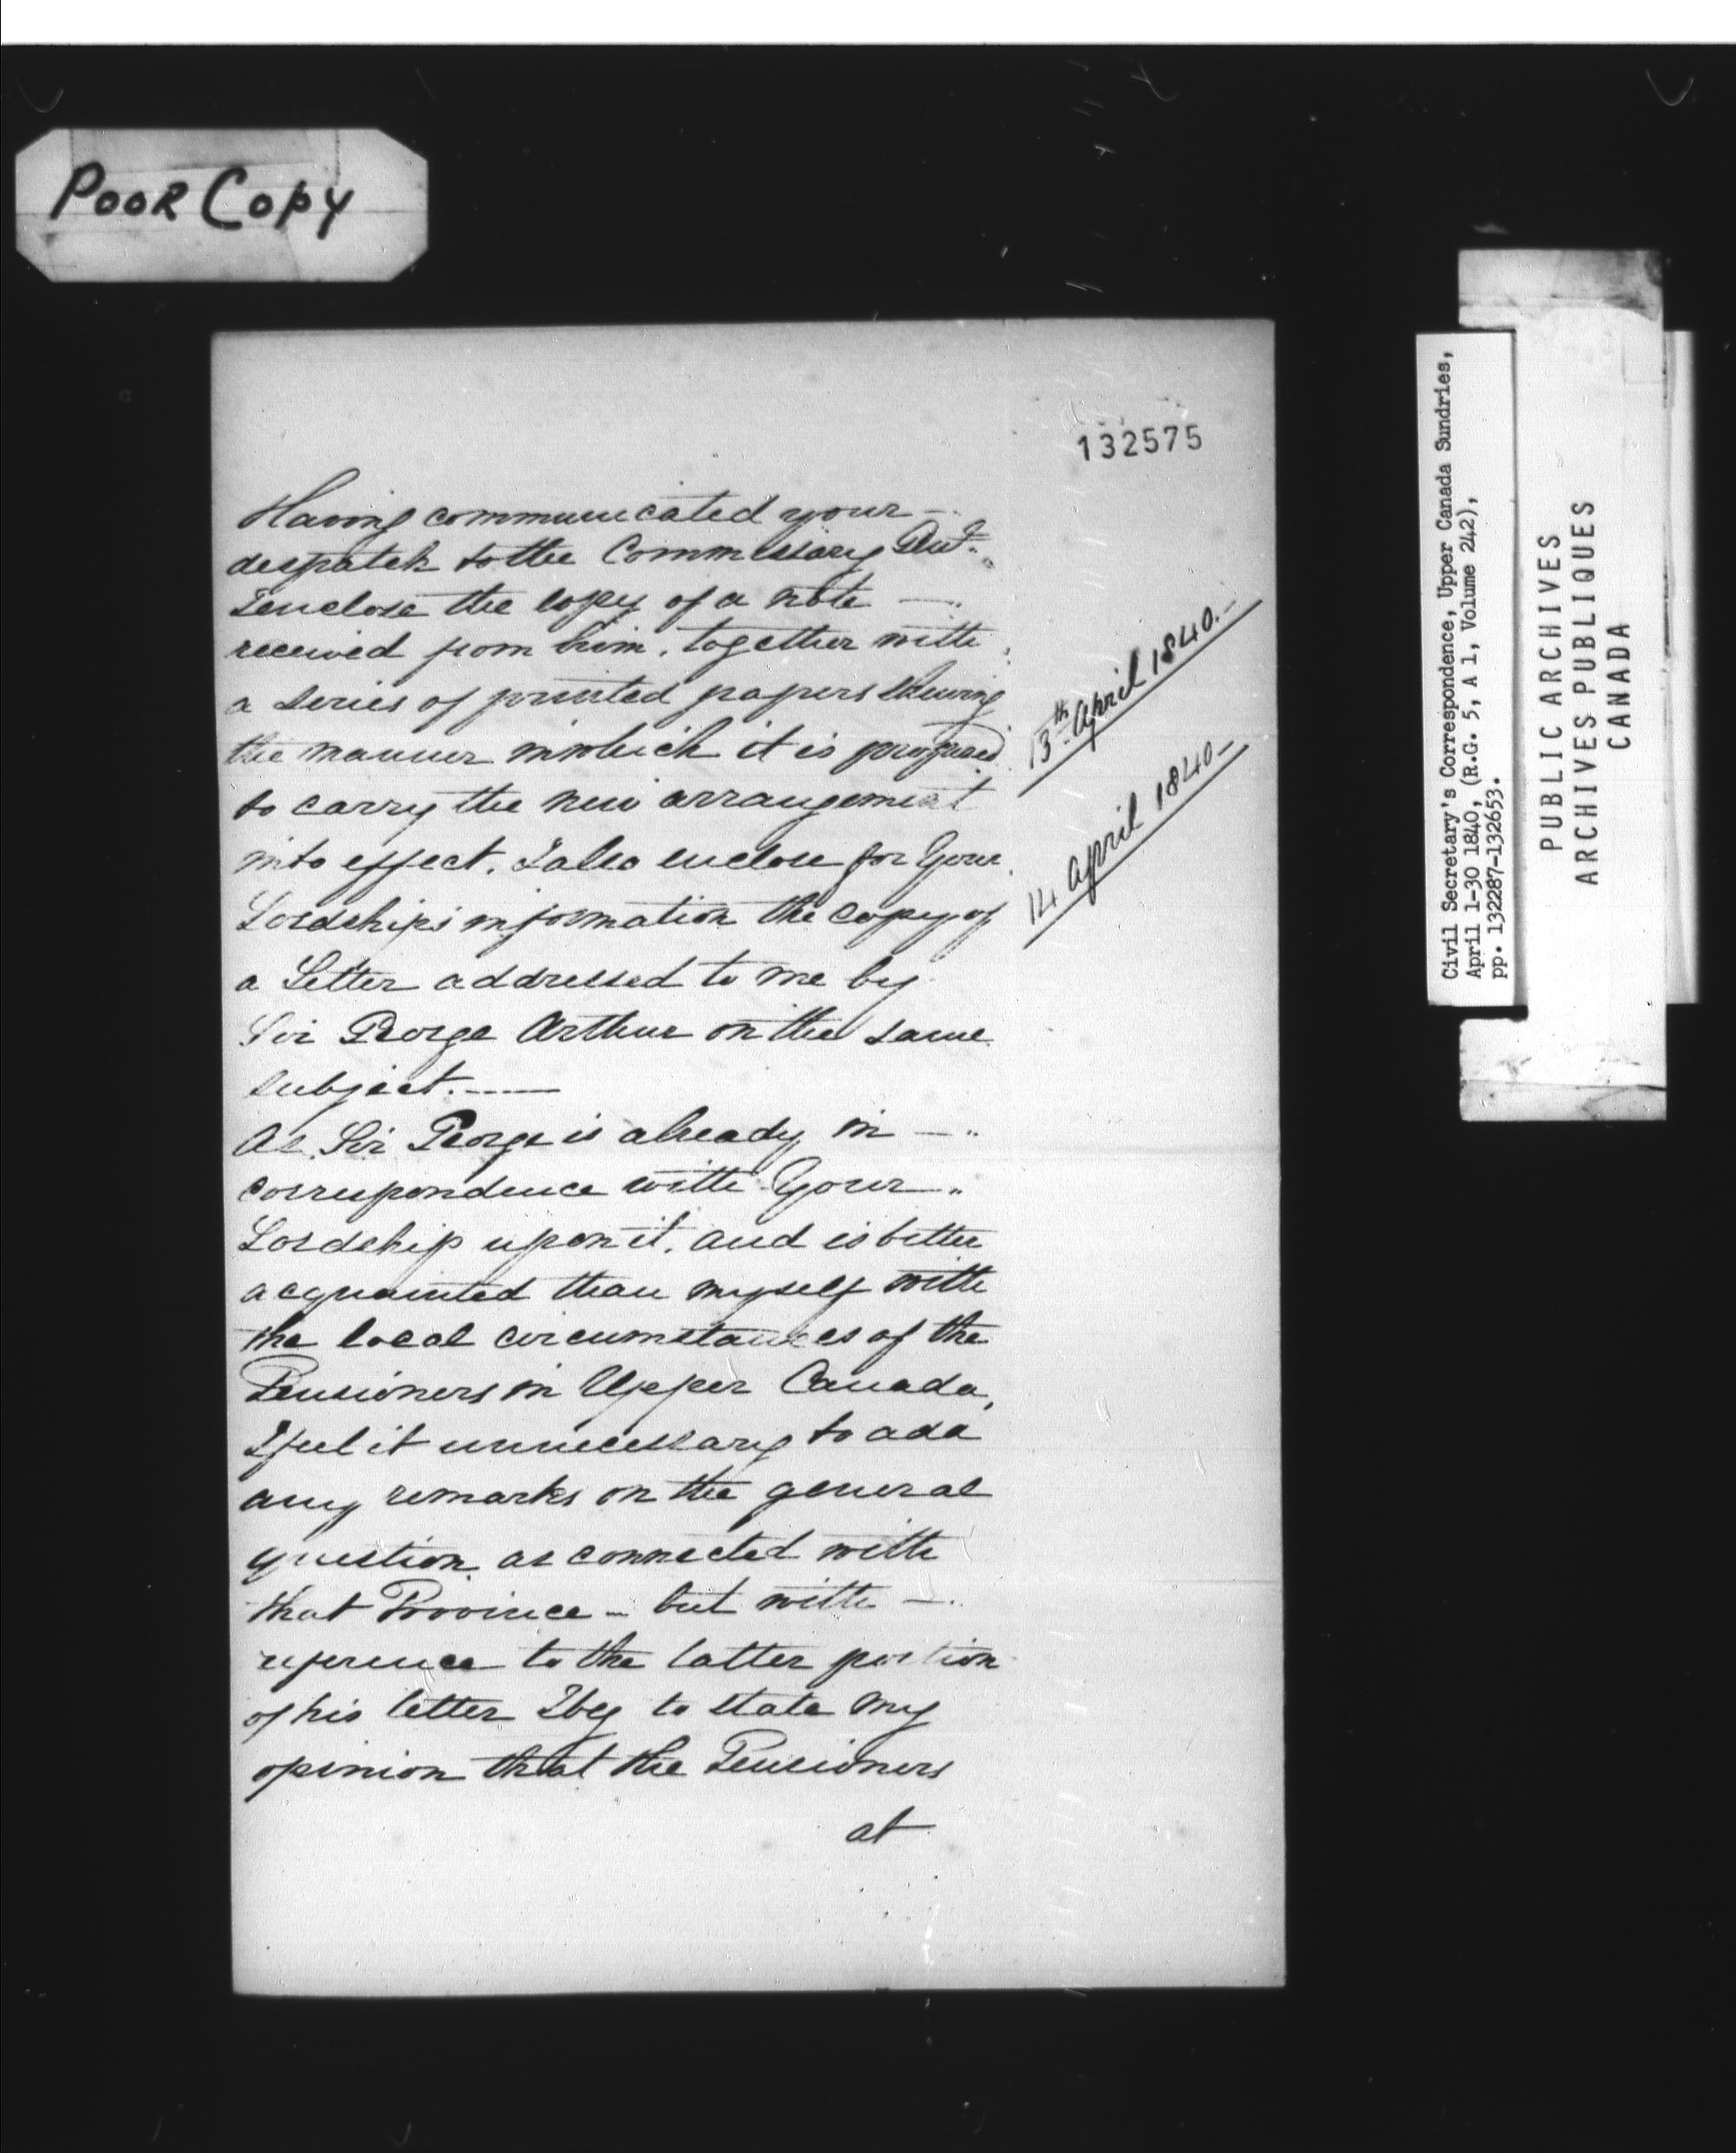 Poor Copy
132575
Having communicated your —
despatch to the Commissary Genl.
I enclose the copy of a note —
received from him, together with
a series of printed papers shewing
the manner in which it is proposed
to carry the new arrangement
into effect. I also enclose for Your
Lordship's information the copy of
a Letter addressed to me by
Sir George Arthur on the same
subject. ——
13th April 1840. —
14 April 1840. —
As Sir George is already in —
correspondence with Your —
Lordship upon it, and is better
acquainted than myself with
the local circumstances of the
Pensioners in Upper Canada,
I feel it unnecessary to add
any remarks on the general
question as connected with
that Province — but with —
reference to the latter portion
of his letter I beg to state my
opinion that the Pensioners
at
Civil Secretary's Correspondence, Upper Canada Sundries,
April 1-30 1840, (R.G. 5, A 1, Volume 242),
pp. 132287-132653.
PUBLIC ARCHIVES
ARCHIVES PUBLIQUES
CANADA